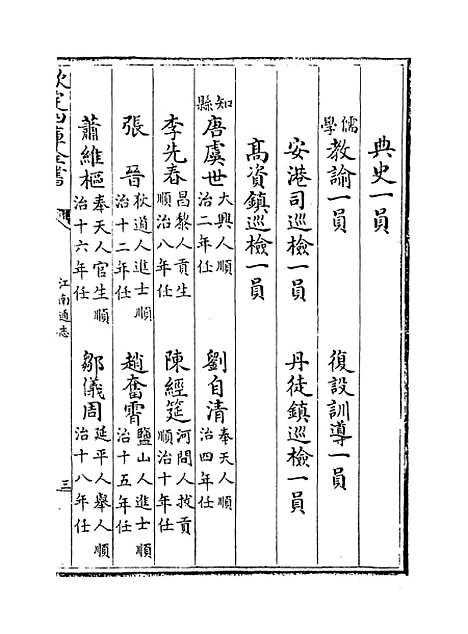 典史一員
儒學教諭一員　復設訓導一員
安港司巡檢一員　丹徒鎮巡檢一員
高資鎮巡檢一員
知縣唐虞世大興人順治二年任　劉自清奉天人順治四年任
李先春昌黎人貢生順治八年任　陳經筵河間人拔貢順治十年任
張晉狄道人進士順治十二年任　趙奮霄鹽山人進士順治十五年任
蕭維樞奉天人官生順治十六年任　鄒儀周延平人舉人順治十八年任
欽定四庫全書
江南通志
三